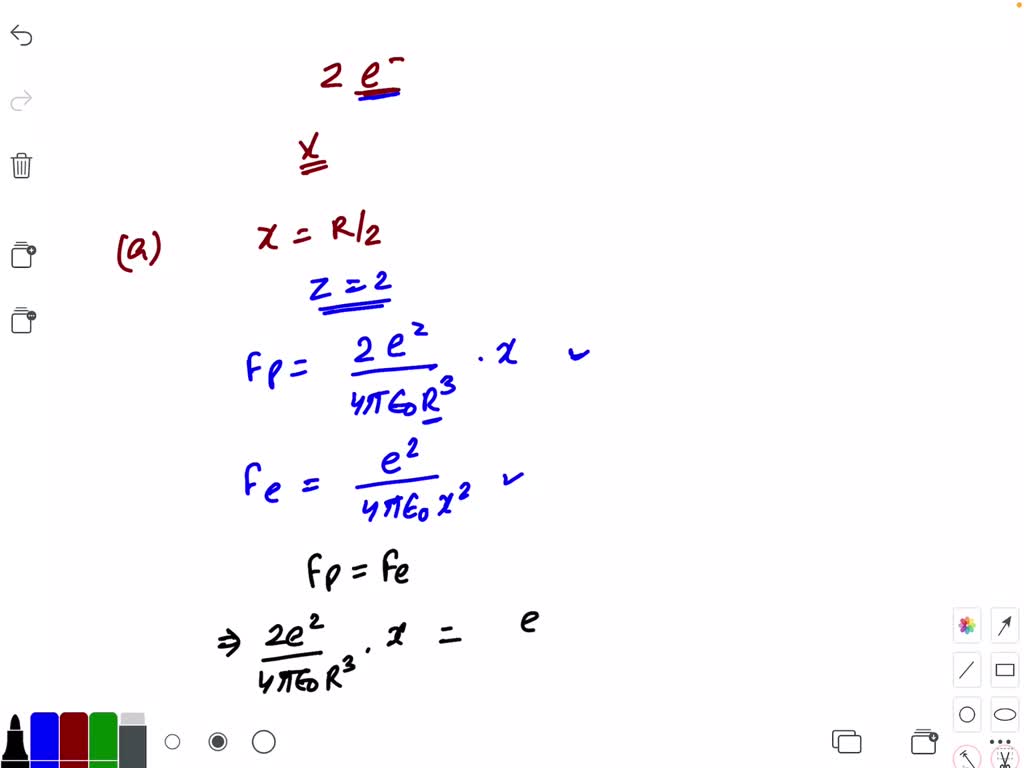 2 e⁻
x
(a) x = R/2
z = 2
Fp = 2e² / 4πϵ₀R³ · x ✓
Fe = e² / 4πϵ₀x² ✓
Fp = Fe
⇒ 2e² / 4πϵ₀R³ · x = e